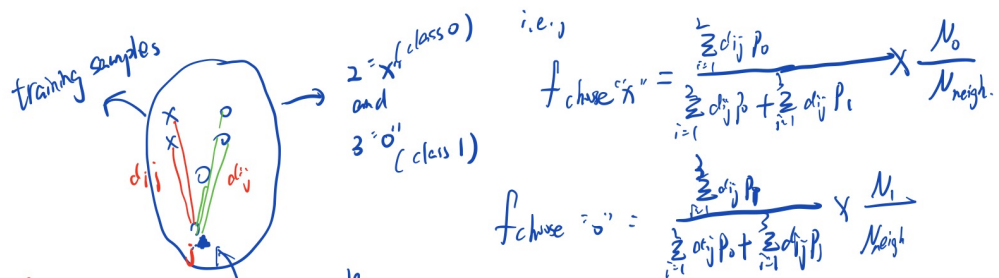 training samples
x o
x o
o
dij dij
j
2 "x" (class 0)
and
3 "o"
(class 1)
i.e.,
f chose "x" = \frac{\sum_{i=1}^{2} dij P_0}{\sum_{i=1}^{2} dij P_0 + \sum_{i=1}^{3} dij P_1} × \frac{N_0}{N_{neigh.}}
f choose "o" = \frac{\sum_{i=1}^{3} dij P_1}{\sum_{i=1}^{2} dij P_0 + \sum_{i=1}^{3} dij P_1} × \frac{N_1}{N_{neigh}}